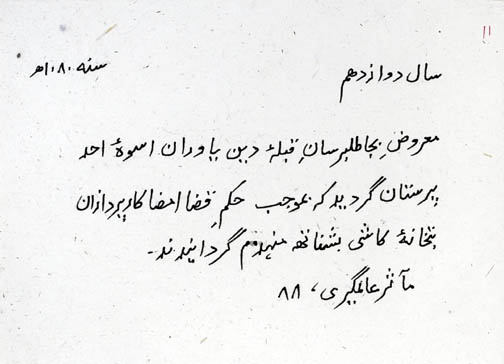 ۱۱
سال دوازدهم
سنه ۱۰۸۰اھ
معروضِ بجاطلپرسانِ قبلۂ دین یاوران اسوۂ احد
پرستان گردید که بموجب حکمِ قضا امضا کارپردازان
بتخانۂ کاشی بشناتھ منہدم گردانیدند۔
مآثر عالمگیری، ۸۸